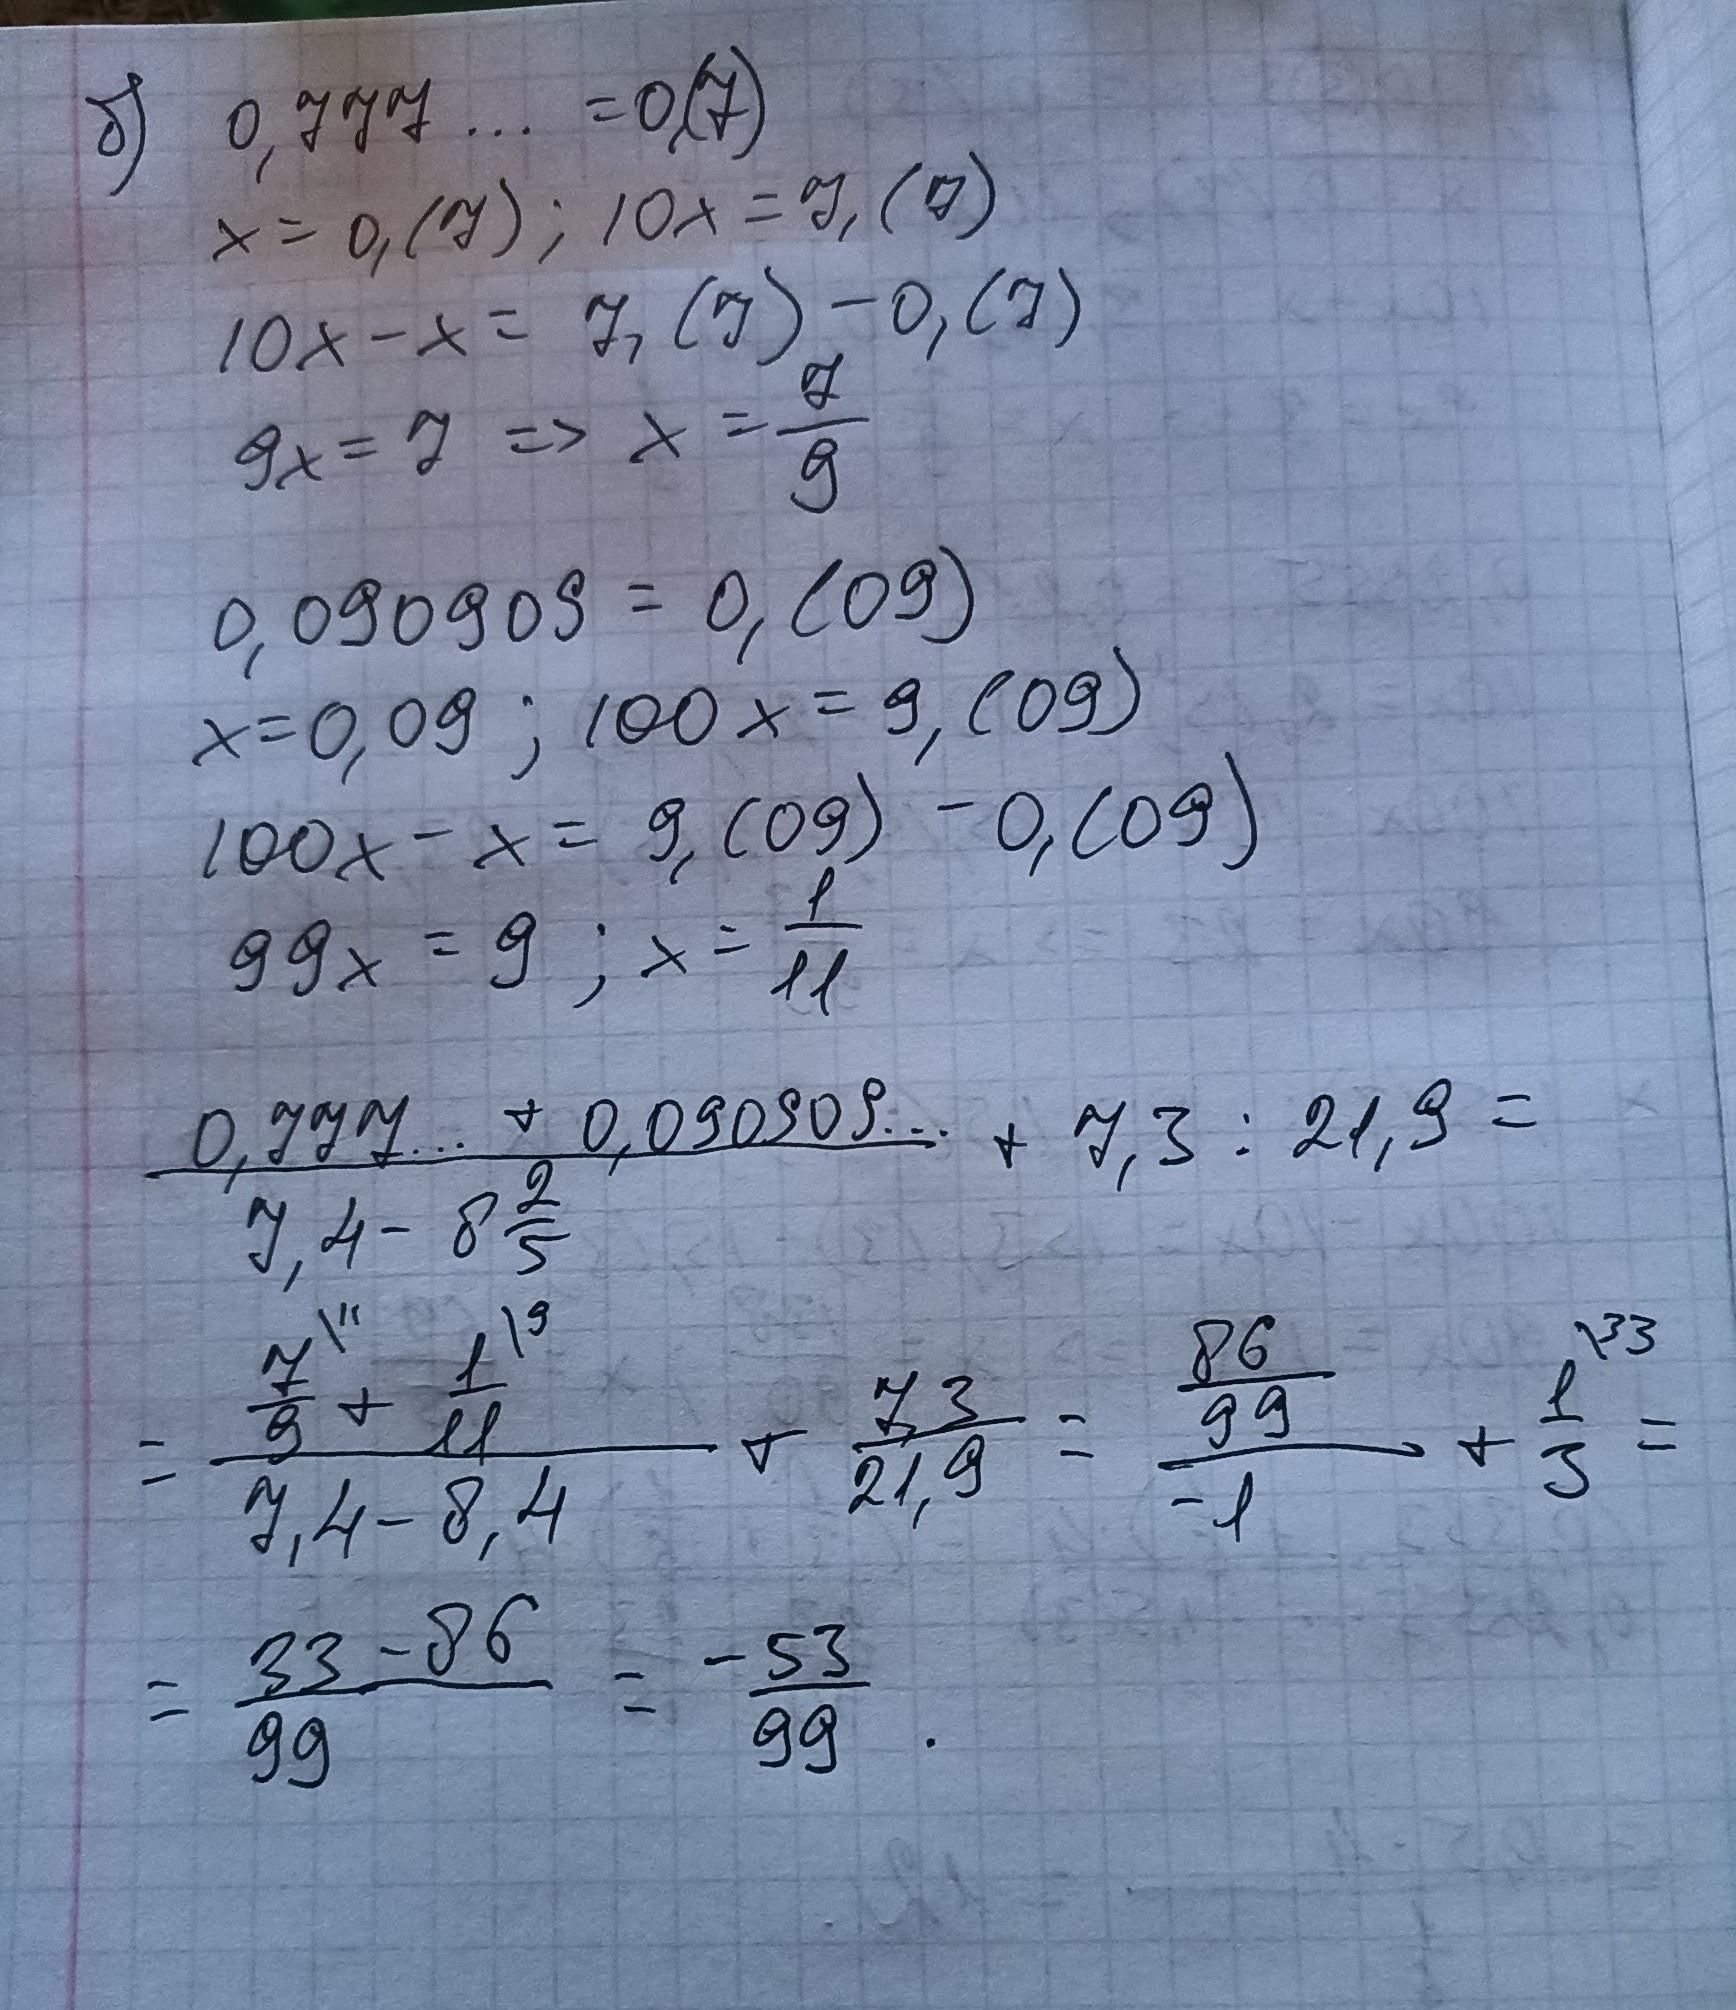 б) 0,777... = 0,(7)
x = 0,(7); 10x = 7,(7)
10x - x = 7,(7) - 0,(7)
9x = 7 => x = 7/9
0,090909 = 0,(09)
x = 0,09; 100x = 9,(09)
100x - x = 9,(09) - 0,(09)
99x = 9; x = 1/11
0,777... + 0,090909... / 7,4 - 8 2/5 + 7,3 : 21,9 =
= 7/9 \11 + 1/11 \9 / 7,4 - 8,4 + 7,3/21,9 = 86/99 / -1 + 1/3 \33 =
= 33 - 86 / 99 = -53/99.